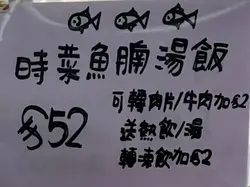 時菜魚腩湯飯
$52
可轉肉片/牛肉加$2
送熱飲/湯
轉凍飲加$2